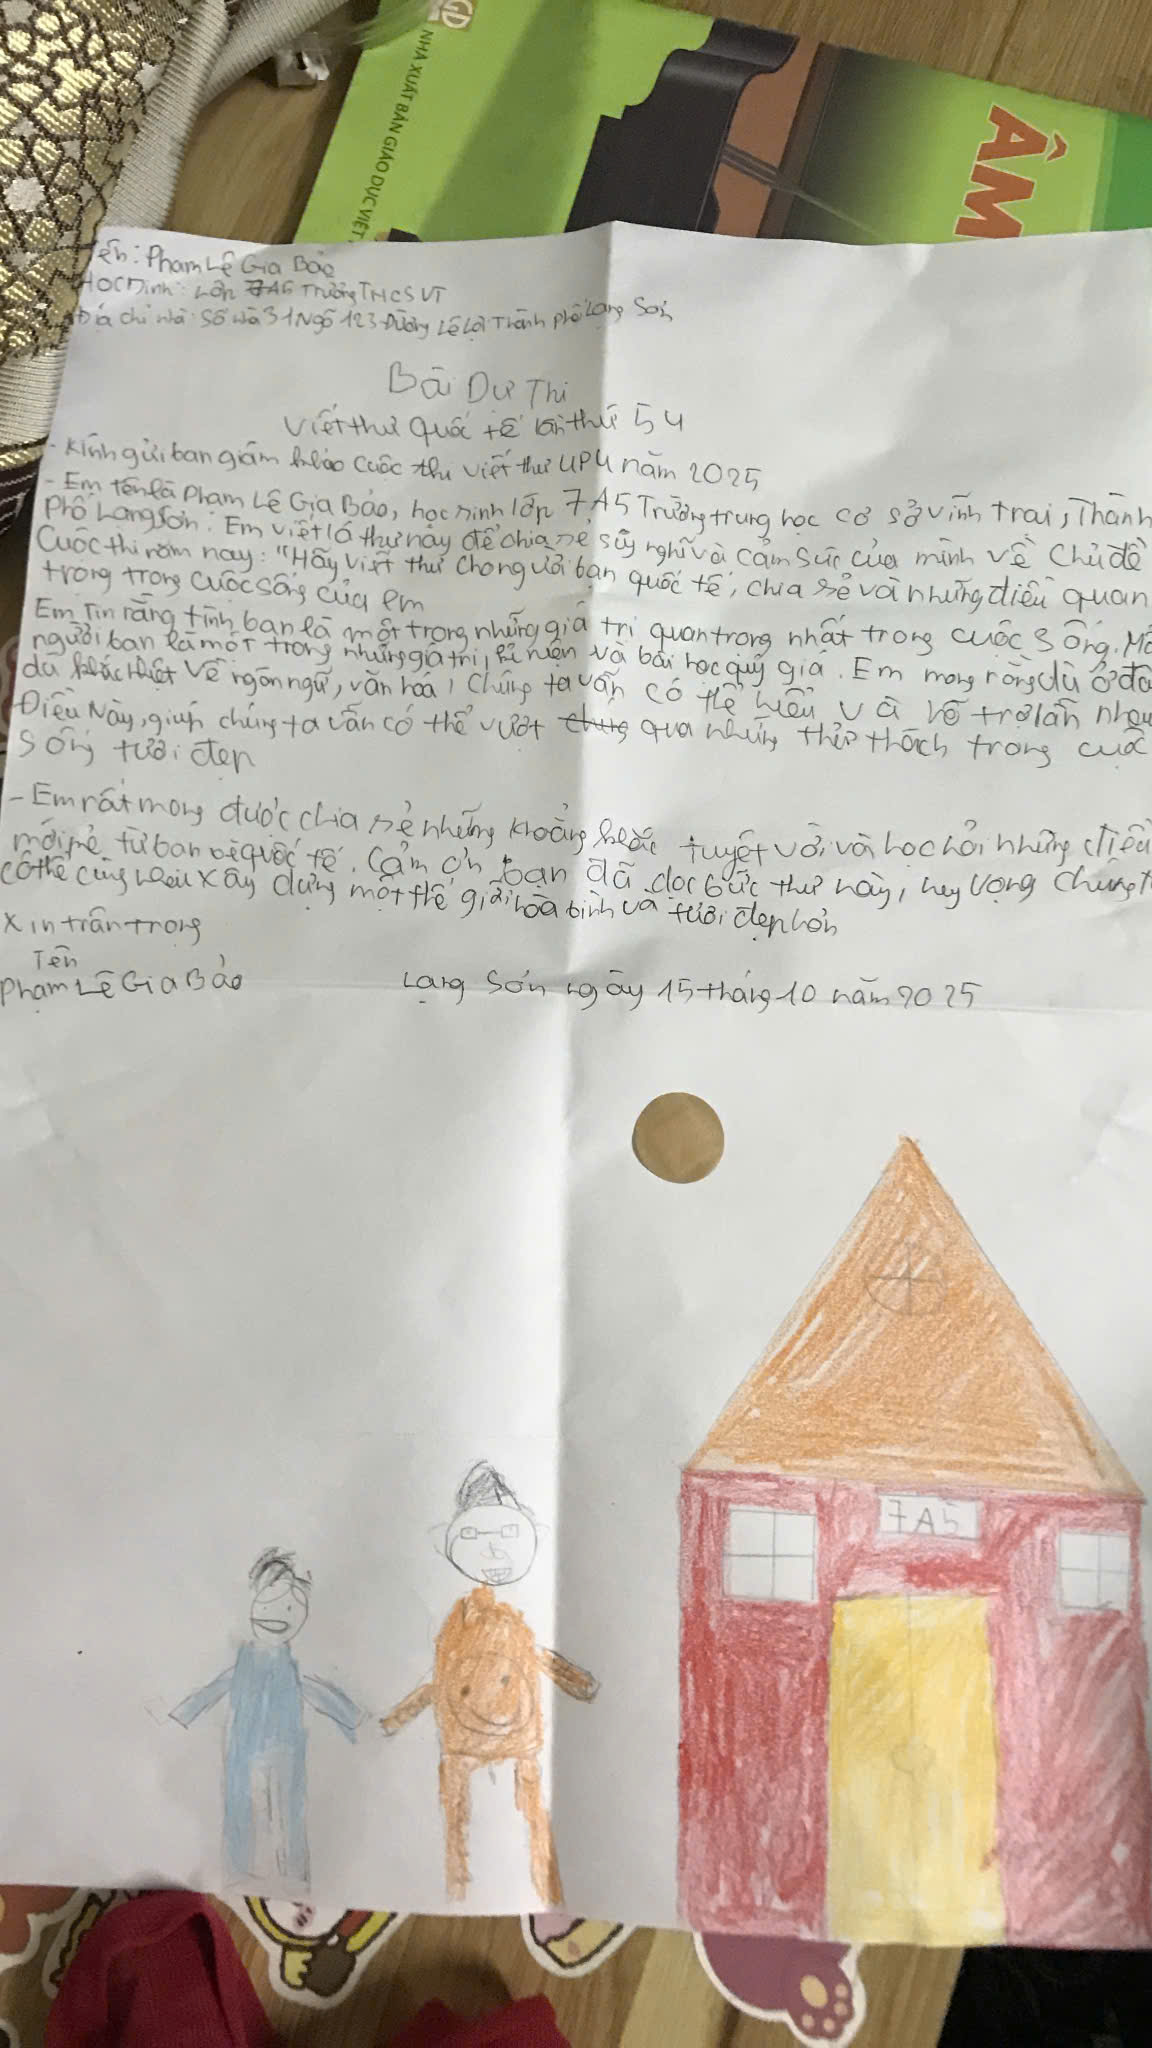 NHÀ XUẤT BẢN GIÁO DỤC VIỆT
ÂM
Tên: Phạm Lê Gia Bảo
Học sinh: Lớp 7A5 Trường THCS VT
Địa chỉ nhà: Số nhà 31 Ngõ 123 Đường Lê Lợi Thành phố Lạng Sơn
Bài Dự Thi
Viết thư Quốc tế lần thứ 54
- Kính gửi ban giám khảo cuộc thi viết thư UPU năm 2025
- Em tên là Phạm Lê Gia Bảo, học sinh lớp 7A5 Trường trung học cơ sở vĩnh trại, Thành
Phố Lạng Sơn. Em viết lá thư này để chia sẻ suy nghĩ và cảm súc của mình về chủ đề
Cuộc thi năm nay: "Hãy viết thư cho người bạn quốc tế, chia sẻ về những điều quan
trọng trong cuộc sống của em
Em Tin rằng tình bạn là một trong những giá trị quan trọng nhất trong cuộc sống. Mỗ
người bạn là một trong những giá trị, kỉ niện và bài học quý giá. Em mong rằng dù ở đâ
dù khác biệt về ngôn ngữ, văn hoá, Chúng ta vẫn có thể hiểu và hỗ trợ lẫn nhau
Điều Này, giúp chúng ta vẫn có thể vượt chúng qua những thử thách trong cuộc
Sống tươi đẹp
- Em rất mong được chia sẻ những khoảng khắc tuyệt vời và học hỏi những điều
mới mẻ từ bạn bè quốc tế. Cảm ơn bạn đã đọc bức thư này, hy vọng chúng t
có thể cùng nhau xây dựng một thế giới hòa bình và tươi đẹp hơn
Xin trân trọng
Tên
Phạm Lê Gia Bảo
Lạng Sơn ngày 15 tháng 10 năm 2025
7A5